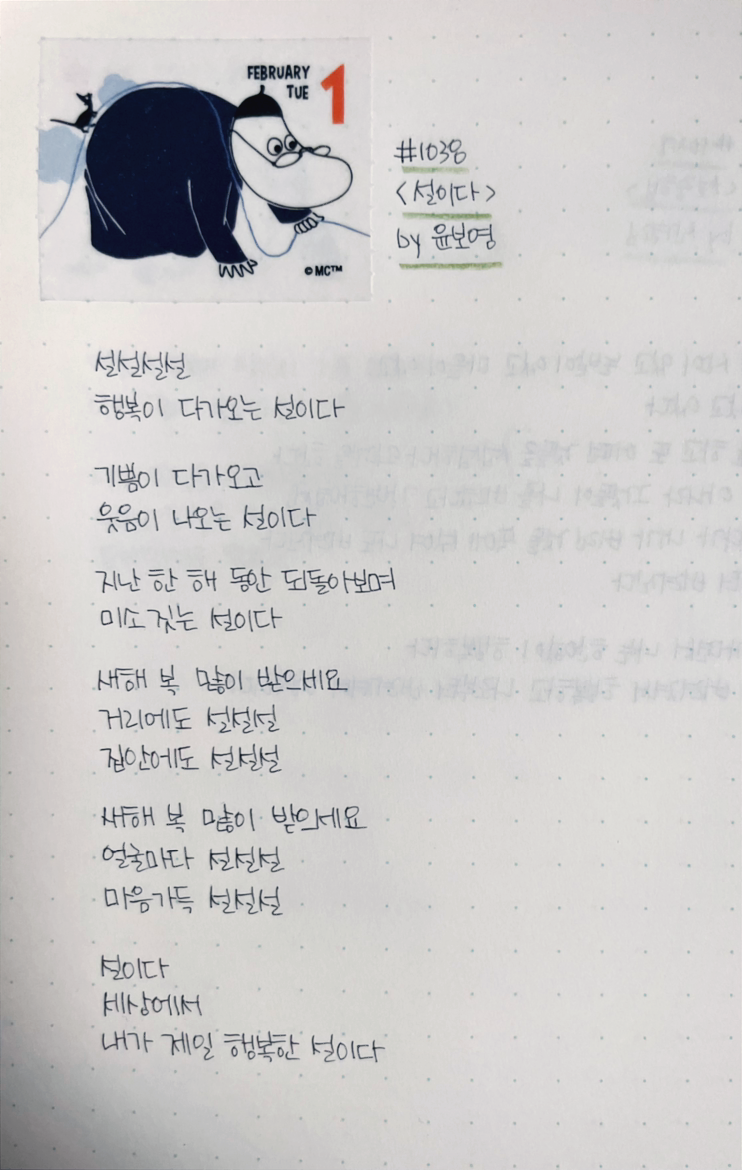 FEBRUARY
TUE
1
© MC™
#1038
<설이다>
by 윤보영
설설설설
행복이 다가오는 설이다
기쁨이 다가오고
웃음이 나오는 설이다
지난 한 해 동안 되돌아보며
미소 짓는 설이다
새해 복 많이 받으세요
거리에도 설설설
집안에도 설설설
새해 복 많이 받으세요
얼굴마다 설설설
마음가득 설설설
설이다
세상에서
내가 제일 행복한 설이다